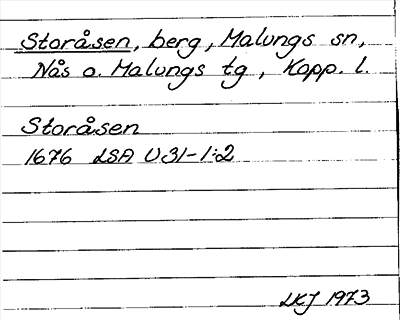 Storåsen, berg, Malungs sn,
Nås o. Malungs tg, Kopp. l.
Storåsen
1676 LSA U31-1:2
LKJ 1973